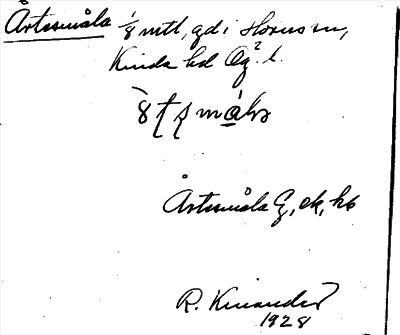 Årtesmåla 1/8 mtl, gd i Horns sn,
Kinda hd Ög. l.
Årtesmåla G, ek, hb
R. Kinander
1928